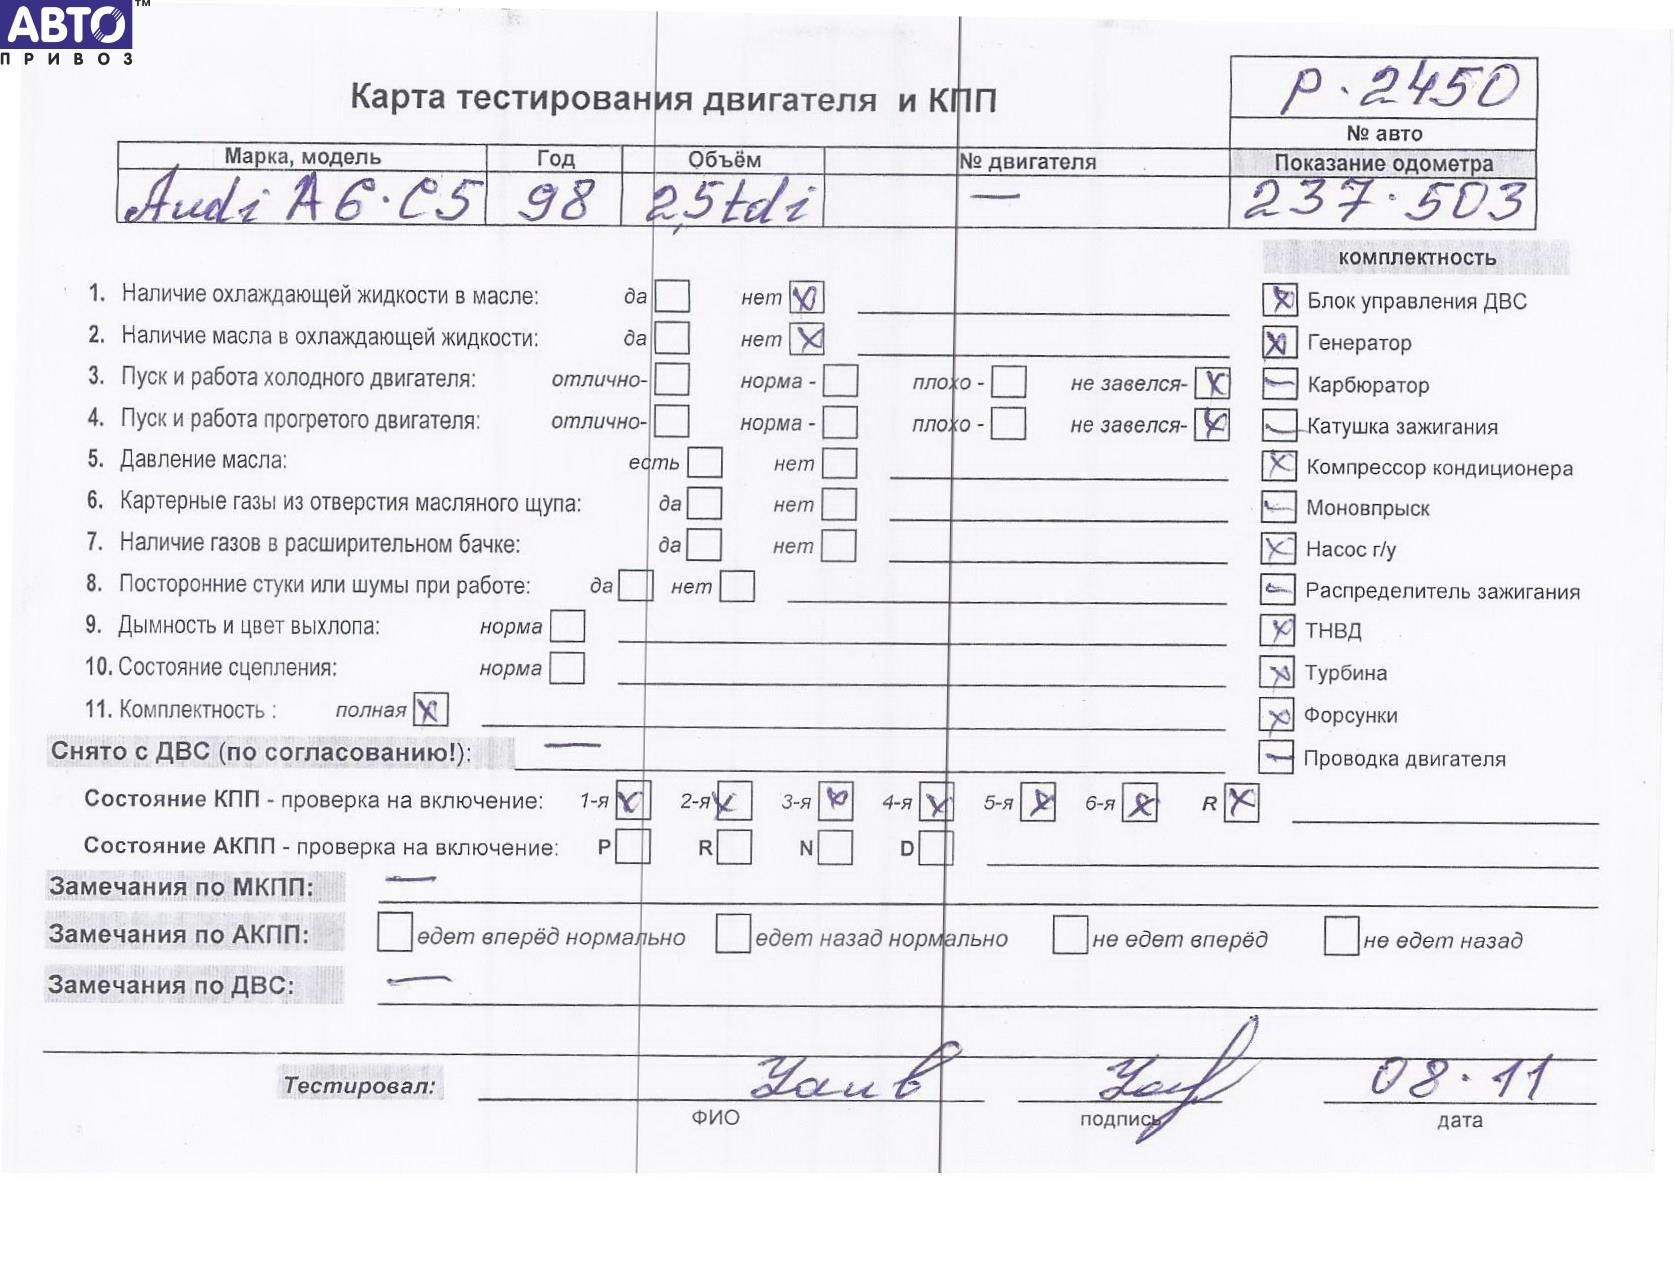 АВТО™
ПРИВОЗ
Карта тестирования двигателя и КПП
р.2450
№ авто
Марка, модель Год Объём № двигателя Показание одометра
Audi A6.C5 98 2,5tdi — 237.503
комплектность
1. Наличие охлаждающей жидкости в масле: да нет X
X Блок управления ДВС
2. Наличие масла в охлаждающей жидкости: да нет X
X Генератор
3. Пуск и работа холодного двигателя: отлично- норма - плохо - не завелся- X
— Карбюратор
4. Пуск и работа прогретого двигателя: отлично- норма - плохо - не завелся- X
— Катушка зажигания
5. Давление масла: есть нет
X Компрессор кондиционера
6. Картерные газы из отверстия масляного щупа: да нет
— Моновпрыск
7. Наличие газов в расширительном бачке: да нет
X Насос г/у
8. Посторонние стуки или шумы при работе: да нет
— Распределитель зажигания
9. Дымность и цвет выхлопа: норма
X ТНВД
10. Состояние сцепления: норма
X Турбина
11. Комплектность : полная X
X Форсунки
Снято с ДВС (по согласованию!): —
— Проводка двигателя
Состояние КПП - проверка на включение: 1-я X 2-я X 3-я X 4-я X 5-я X 6-я X R X
Состояние АКПП - проверка на включение: P R N D
Замечания по МКПП: —
Замечания по АКПП: едет вперёд нормально едет назад нормально не едет вперёд не едет назад
Замечания по ДВС: —
Тестировал: 08.11
ФИО подпись дата